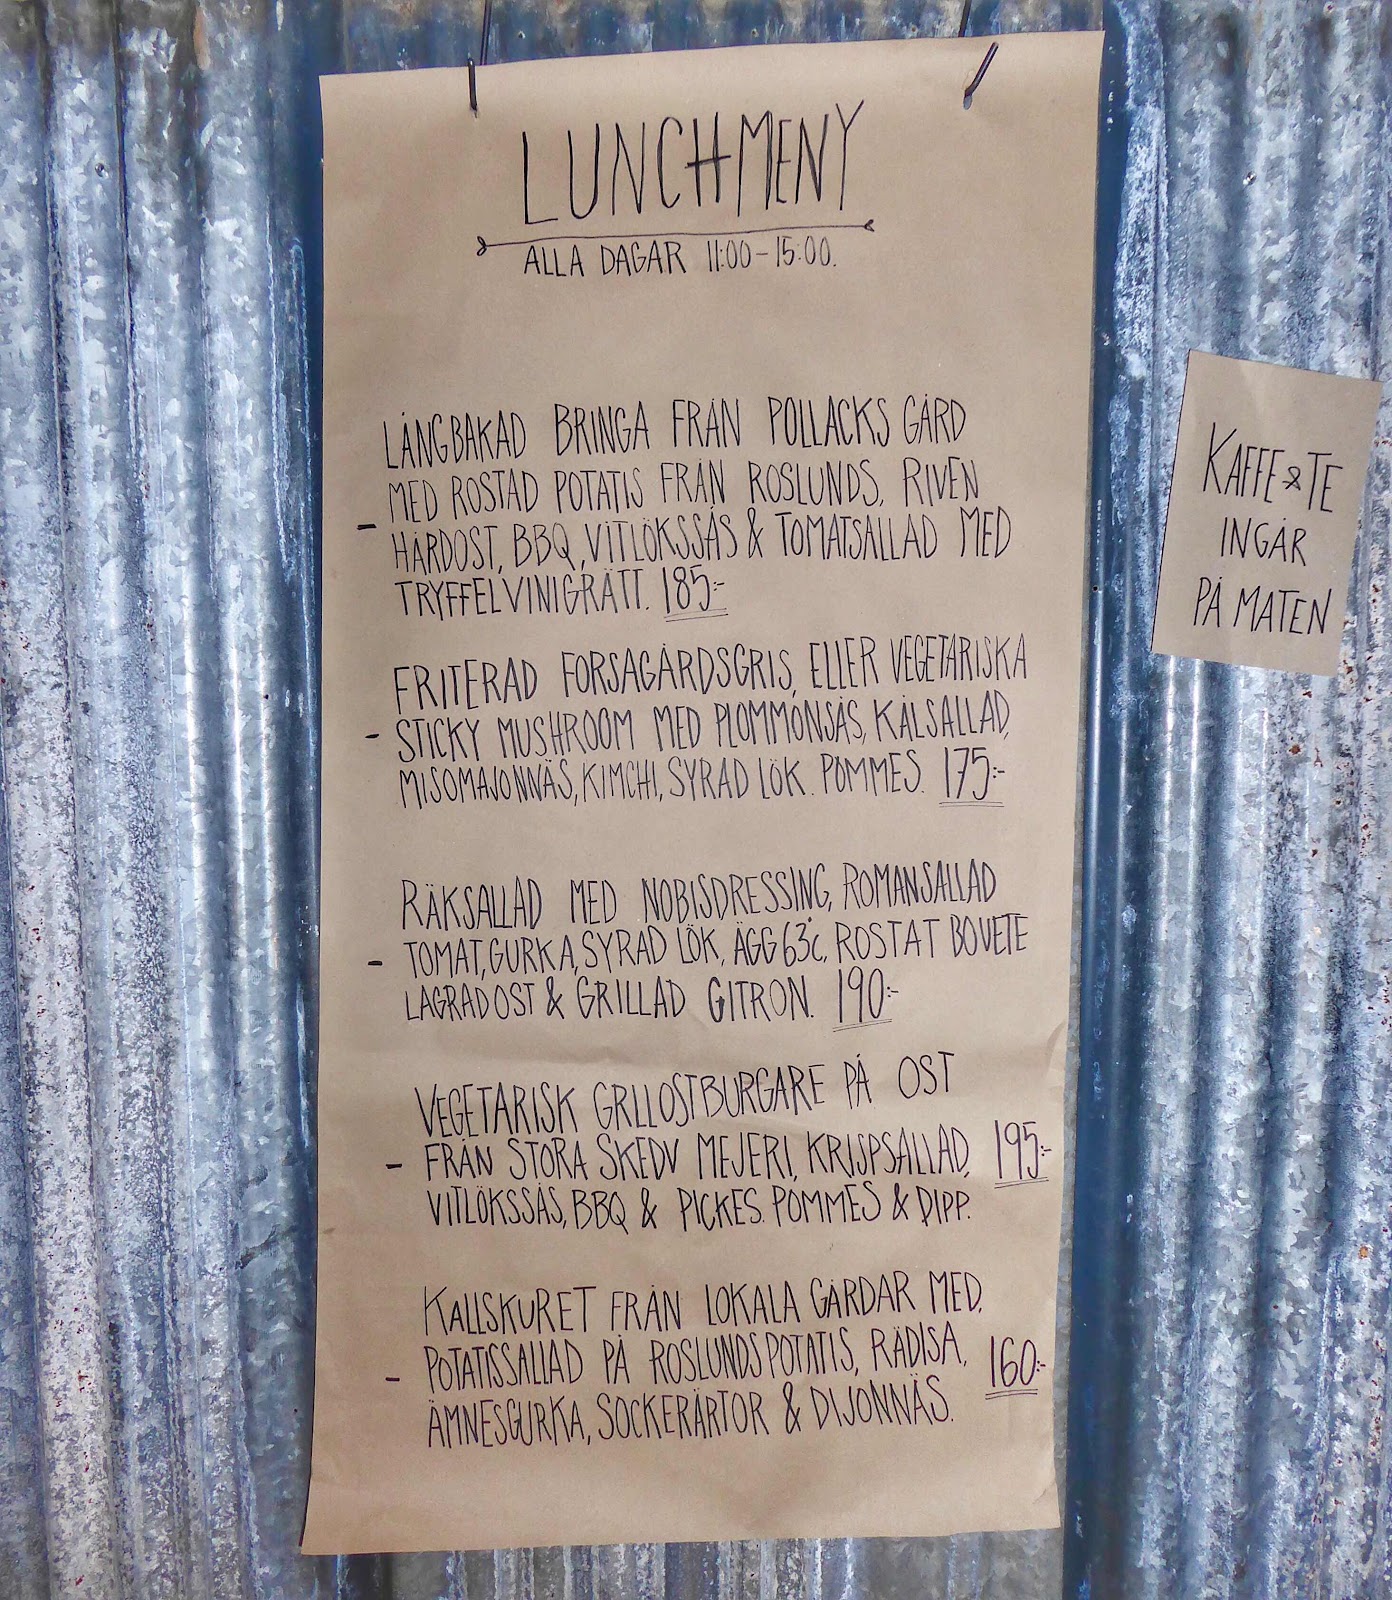 LUNCHMENY
ALLA DAGAR 11:00-15:00.
LÅNGBAKAD BRINGA FRÅN POLLACKS GÅRD
MED ROSTAD POTATIS FRÅN ROSLUNDS, RIVEN
- HÅRDOST, BBQ, VITLÖKSSÅS & TOMATSALLAD MED
TRYFFELVINIGRÄTT. 185:-
FRITERAD FORSAGÅRDSGRIS, ELLER VEGETARISKA
- STICKY MUSHROOM MED PLOMMONSÅS, KÅLSALLAD,
MISOMAJONNÄS, KIMCHI, SYRAD LÖK. POMMES. 175:-
RÄKSALLAD MED NOBISDRESSING, ROMANSALLAD
- TOMAT, GURKA, SYRAD LÖK, ÄGG 63°C, ROSTAT BOVETE
LAGRAD OST & GRILLAD CITRON. 190:-
VEGETARISK GRLLOSTBURGARE PÅ OST
- FRÅN STORA SKEDV MEJERI, KRISPSALLAD, 195:-
VITLÖKSSÅS, BBQ & PICKES. POMMES & DIPP.
KALLSKURET FRÅN LOKALA GÅRDAR MED,
- POTATISSALLAD PÅ ROSLUNDSPOTATIS, RÄDISA, 160:-
ÄMNESGURKA, SOCKERÄRTOR & DIJONNÄS.
KAFFE & TE
INGÅR
PÅ MATEN